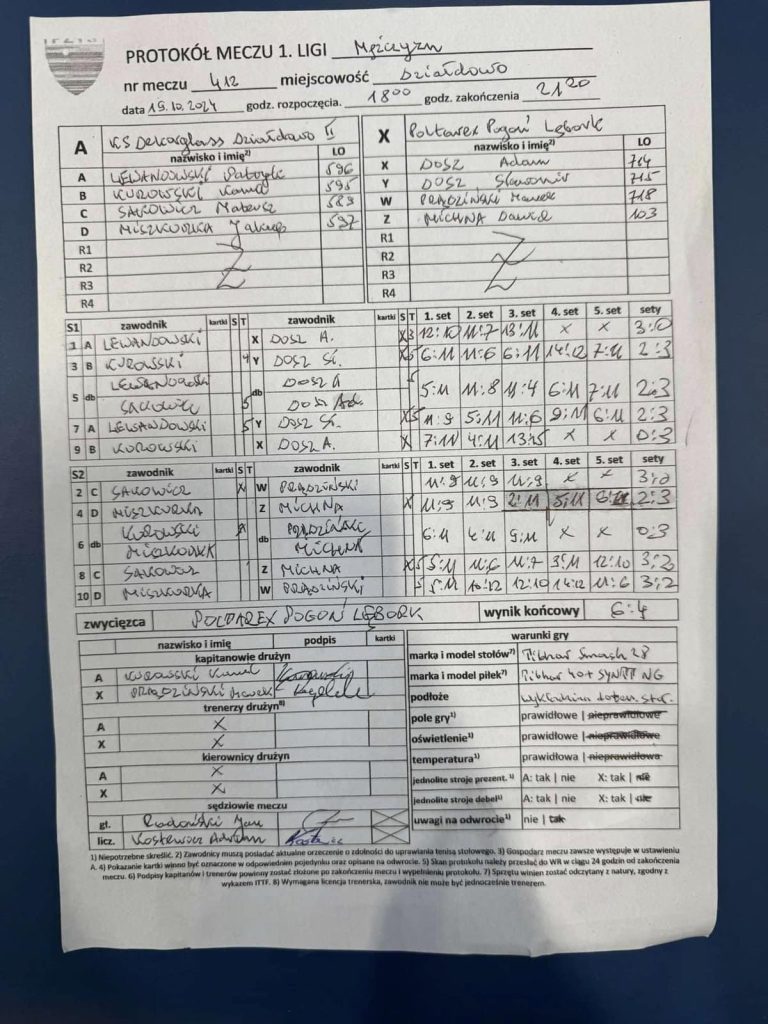 PROTOKÓŁ MECZU 1. LIGI Mężczyzn
nr meczu 412 miejscowość Działdowo
data 19.10.2024 godz. rozpoczęcia. 18⁰⁰ godz. zakończenia 21²⁰
A KS Dekorglass Działdowo II
nazwisko i imię²⁾ LO
A LEWANDOWSKI Patryk 596
B KUROWSKI Kamil 595
C SAKOWICZ Mateusz 589
D MISZKURKA Jakub 597
R1
R2
R3
R4
X Poltarex Pogoń Lębork
nazwisko i imię²⁾ LO
X DOSZ Adam 714
Y DOSZ Sławomir 715
W PRĄDZIŃSKI Marek 718
Z MICHNA Dawid 103
R1
R2
R3
R4
S1 zawodnik kartki S T zawodnik kartki S T 1. set 2. set 3. set 4. set 5. set sety
1 A LEWANDOWSKI X DOSZ A. X 3 12:10 11:7 13:11 x x 3:0
3 B KUROWSKI 4 Y DOSZ Sł. X 5 6:11 11:6 6:11 14:12 7:11 2:3
5 db LEWANDOWSKI SAKOWICZ 5 db DOSZ A DOSZ 5 5:11 11:8 11:4 6:11 7:11 2:3
7 A LEWANDOWSKI 5 Y DOSZ Sł. X 5 11:9 5:11 11:6 9:11 6:11 2:3
9 B KUROWSKI X DOSZ A. X 7:11 4:11 13:15 x x 0:3
S2 zawodnik kartki S T zawodnik kartki S T 1. set 2. set 3. set 4. set 5. set sety
2 C SAKOWICZ X W PRĄDZIŃSKI 11:9 11:9 11:9 x x 3:0
4 D MISZKURKA Z MICHNA X 11:9 11:9 2:11 5:11 6:11 2:3
6 db KUROWSKI MISZKURKA db PRĄDZIŃSKI MICHNA 6:11 4:11 9:11 x x 0:3
8 C SAKOWICZ Z MICHNA X 5 5:11 11:6 11:7 9:11 12:10 3:2
10 D MISZKURKA W PRĄDZIŃSKI 5 5:11 10:12 12:10 14:12 11:6 3:2
zwycięzca POLTAREX POGOŃ LĘBORK wynik końcowy 6:4
nazwisko i imię podpis kartki
kapitanowie drużyn
A KUROWSKI Kamil
X PRĄDZIŃSKI Marek
trenerzy drużyn⁸⁾
A X
X X
kierownicy drużyn
A X
X X
sędziowie meczu
gł.
licz. Adrian
warunki gry
marka i model stołów⁷⁾ Tibhar Smash 28
marka i model piłek⁷⁾ Tibhar 40+ SYNTT NG
podłoże
pole gry¹⁾ prawidłowe | nieprawidłowe
oświetlenie¹⁾ prawidłowe | nieprawidłowe
temperatura¹⁾ prawidłowa | nieprawidłowa
jednolite stroje prezent. ¹⁾ A: tak | nie X: tak | nie
jednolite stroje debel¹⁾ A: tak | nie X: tak | nie
uwagi na odwrocie¹⁾ nie | tak
1) Niepotrzebne skreślić. 2) Zawodnicy muszą posiadać aktualne orzeczenie o zdolności do uprawiania tenisa stołowego. 3) Gospodarz meczu zawsze występuje w ustawieniu
A. 4) Pokazanie kartki winno być oznaczone w odpowiednim pojedynku oraz opisane na odwrocie. 5) Skan protokołu należy przesłać do WR w ciągu 24 godzin od zakończenia
meczu. 6) Podpisy kapitanów i trenerów powinny zostać złożone po zakończeniu meczu i wypełnieniu protokołu. 7) Sprzętu winien zostać odczytany z natury, zgodny z
wykazem ITTF. 8) Wymagana licencja trenerska, zawodnik nie może być jednocześnie trenerem.